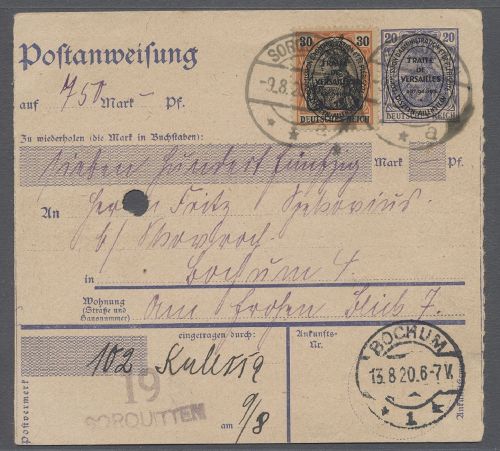 Postanweisung
30 30
TRAITÉ
DE
VERSAILLES
DEUTSCHES REICH
20 20
TRAITÉ
DE
VERSAILLES
DEUTSCHES REICH
SOR
-9.8.20
a
auf 750 Mark — Pf.
Zu wiederholen (die Mark in Buchstaben):
sieben hundert fünfzig Mark — Pf.
An Herrn Fritz
in Bochum 4.
Wohnung
(Straße und
Hausnummer)
Am frohen Blick 7.
eingetragen durch:
Ankunfts-
Nr.
102
19
SORQUITTEN
am 9/8
Postvermerk
BOCHUM
13.8.20.6-7V.
* 1 *